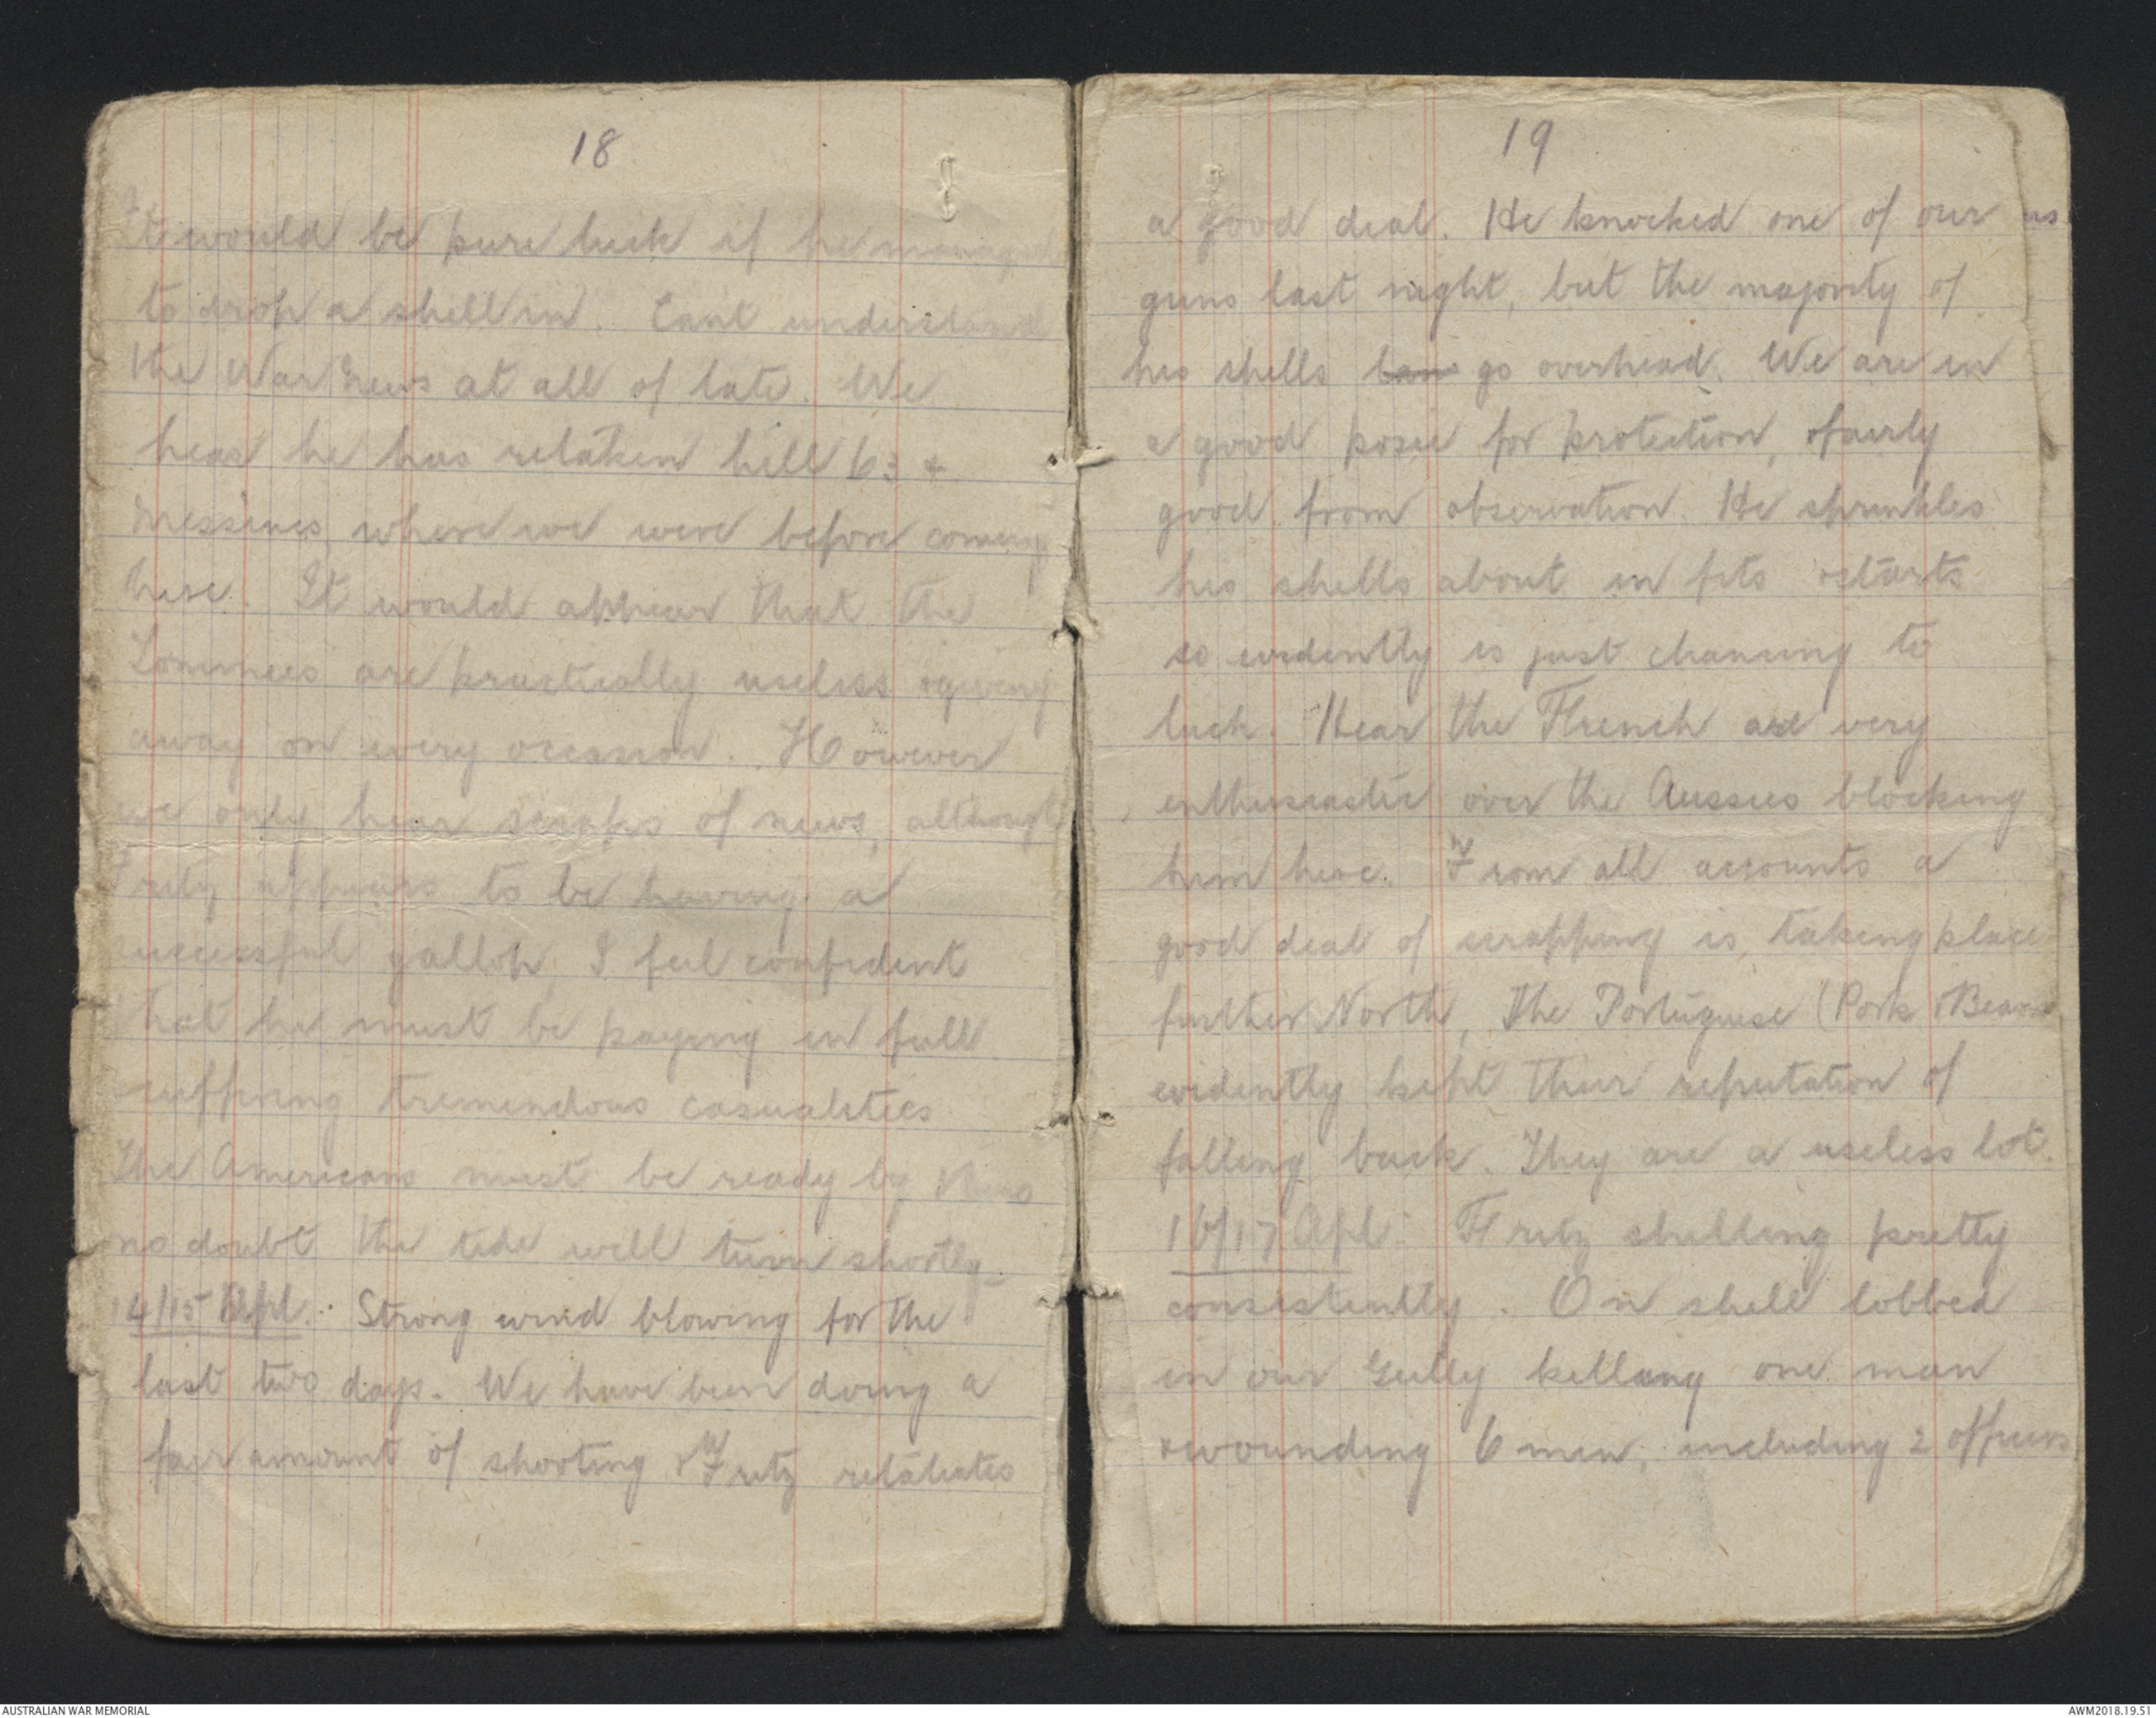 18
It would be pure luck if he managed
to drop a shell in. Cant understand
the War News at all of late. We
hear he has retaken hill 63 &
Messines, where we were before coming
here. It would appear that the
Tommies are practically useless & giving
away on every occasion. However
we only hear scraps of news, although
Fritz appears to be having a
successful gallop, I feel confident
that he must be paying in full
suffring tremendous casualities
The Americans must be ready by
no doubt the tide will turn shortly
14/15 Apl. Strong wind blowing for the
last two days. We have been doing a
fair amount of shooting & Fritz retaliates
19
a good deal. He knocked one of our
guns last night, but the majority of
his shells go overhead. We are in
a good posie for protection, & fairly
good from observation. He sprinkles
his shells about in fits & starts
so evidently is just chancing to
luck. Hear the French are very
enthusiastic over the Aussies blocking
him here. From all accounts a
good deal of scrapping is, taking place
further North, The Portuguese (Pork & Beans
evidently kept their reputation of
falling back. They are a useless lot.
16/17 Apl. Fritz shelling pretty
consistently. On shell lobbed
in our Gully killing one man
& wounding 6 men, including 2 officers
AUSTRALIAN WAR MEMORIAL
AWM2018.19.51